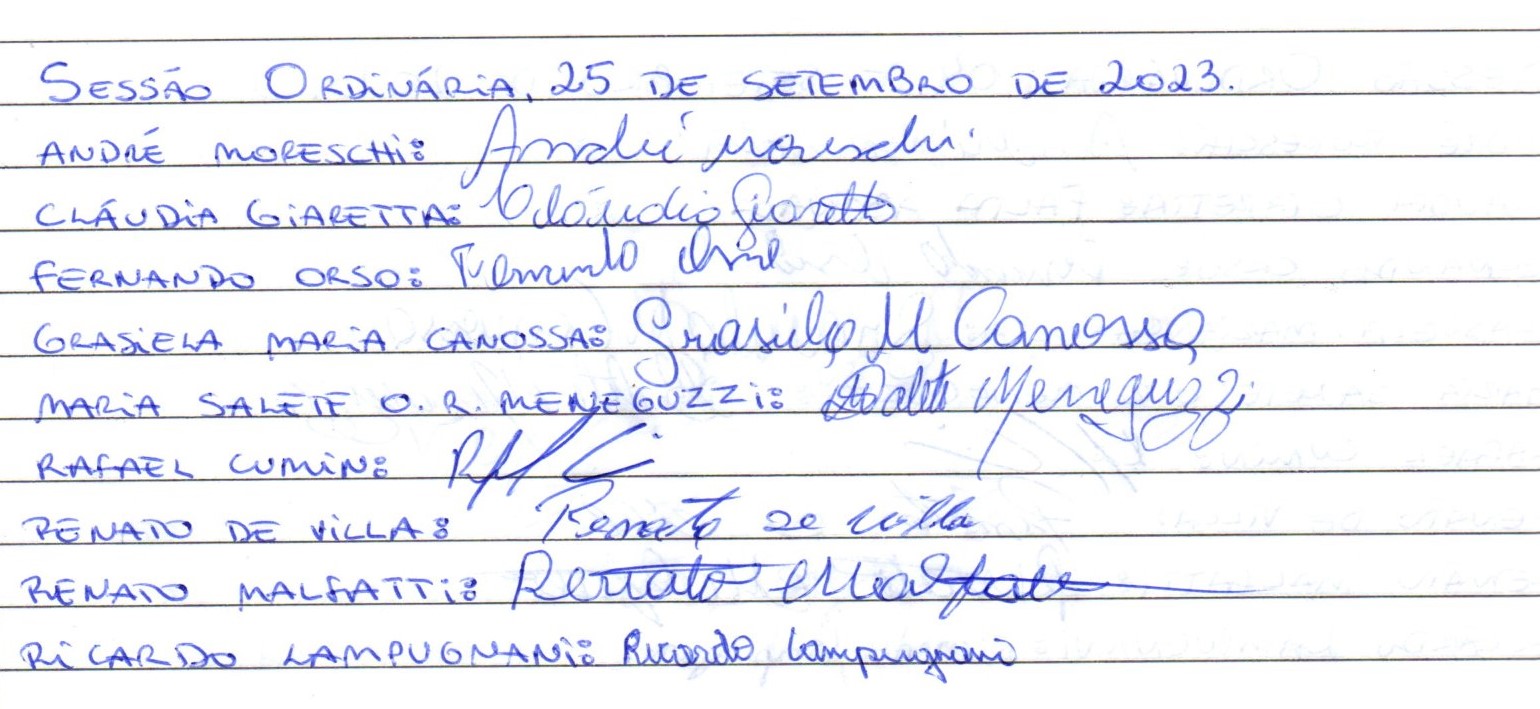 SESSÃO ORDINÁRIA, 25 DE SETEMBRO DE 2023.
ANDRÉ MORESCHI: André Moreschi
CLÁUDIA GIARETTA: Cláudia Giaretta
FERNANDO ORSO: Fernando Orso
GRASIELA MARIA CANOSSA: Grasiela M Canossa
MARIA SALETE O. R. MENEGUZZI: Salete Meneguzzi
RAFAEL CUMIN:
RENATO DE VILLA: Renato de Villa
RENATO MALFATTI: Renato Malfatti
RICARDO LAMPUGNANI: Ricardo Lampugnani